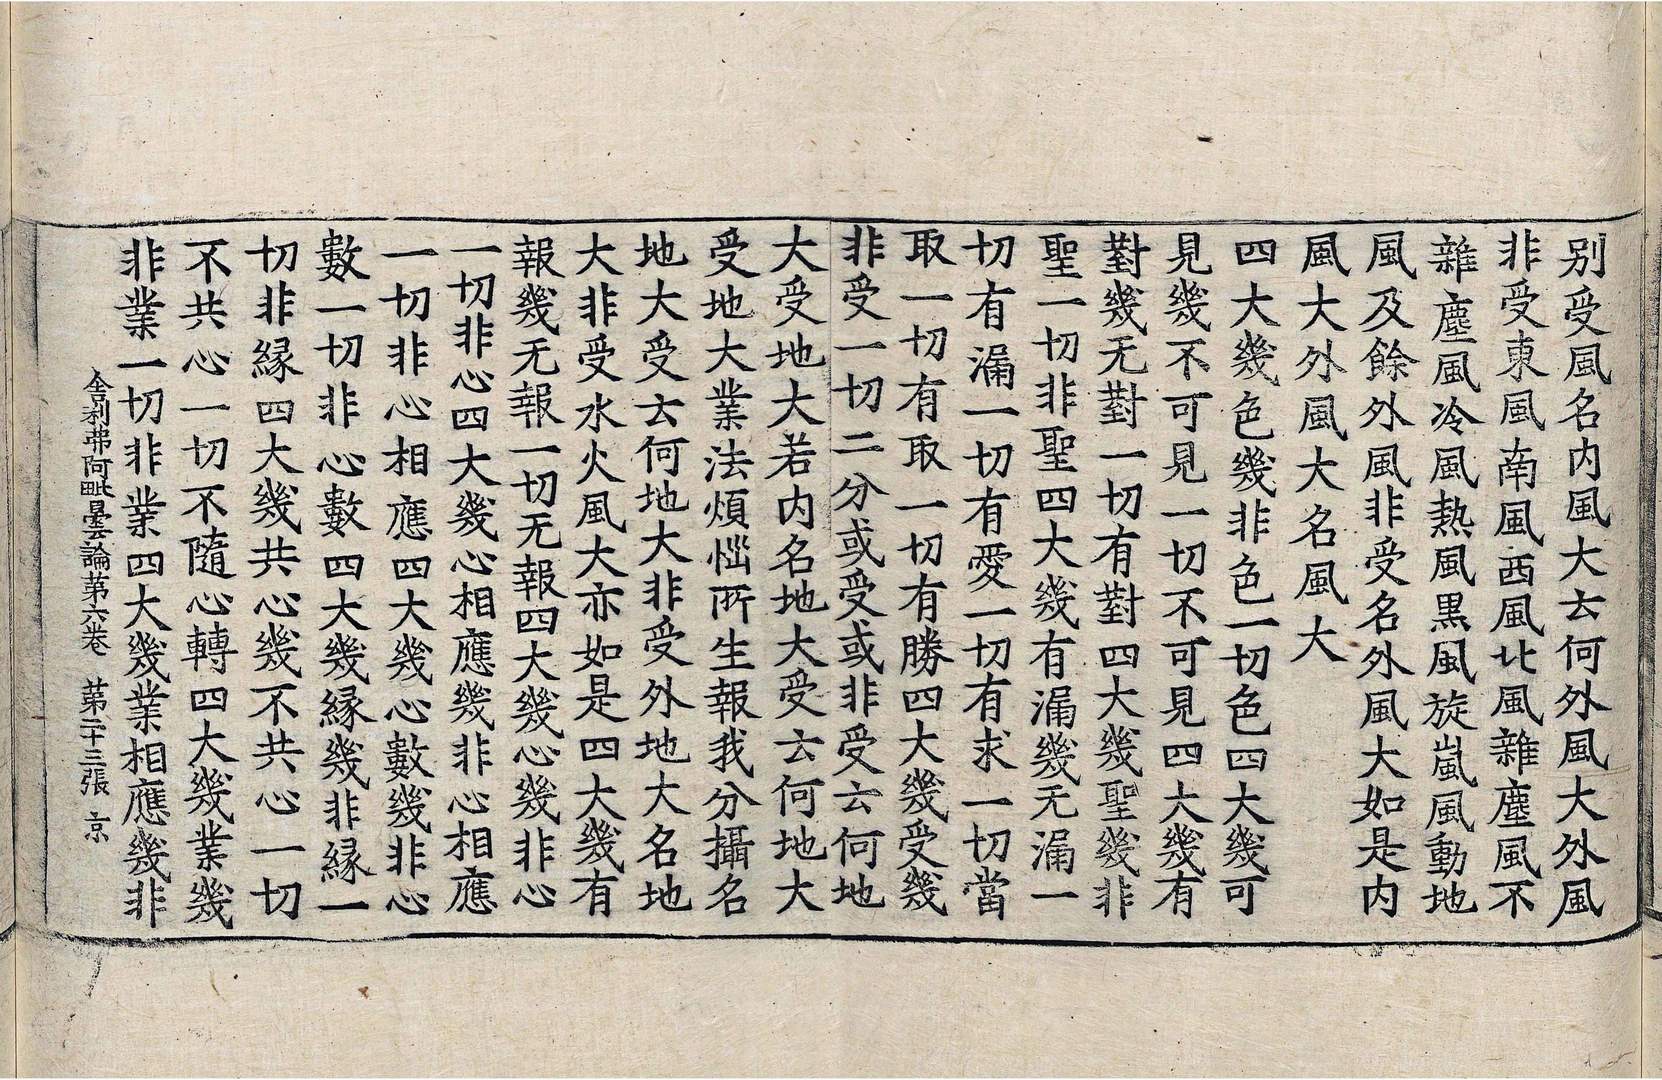 别受風名内風大云何外風大外風
非受東風南風西風北風雜塵風不
雜塵風冷風熱風黒風旋嵐風動地
風及餘外風非受名外風大如是内
風大外風大名風大
四大幾色幾非色一切色四大幾可
見幾不可見一切不可見四大幾有
對幾无對一切有對四大幾聖幾非
聖一切非聖四大幾有漏幾无漏一
切有漏一切有愛一切有求一切當
取一切有取一切有勝四大幾受幾
非受一切二分或受或非受云何地
大受地大若内名地大受云何地大
受地大業法煩惱所生報我分攝名
地大受云何地大非受外地大名地
大非受水火風大亦如是四大幾有
報幾无報一切无報四大幾心幾非心
一切非心四大幾心相應幾非心相應
一切非心相應四大幾心數幾非心
數一切非心數四大幾緣幾非緣一
切非緣四大幾共心幾不共心一切
不共心一切不隨心轉四大幾業幾
非業一切非業四大幾業相應幾非
舎利弗阿毗曇論第六卷 苐二十三張 京